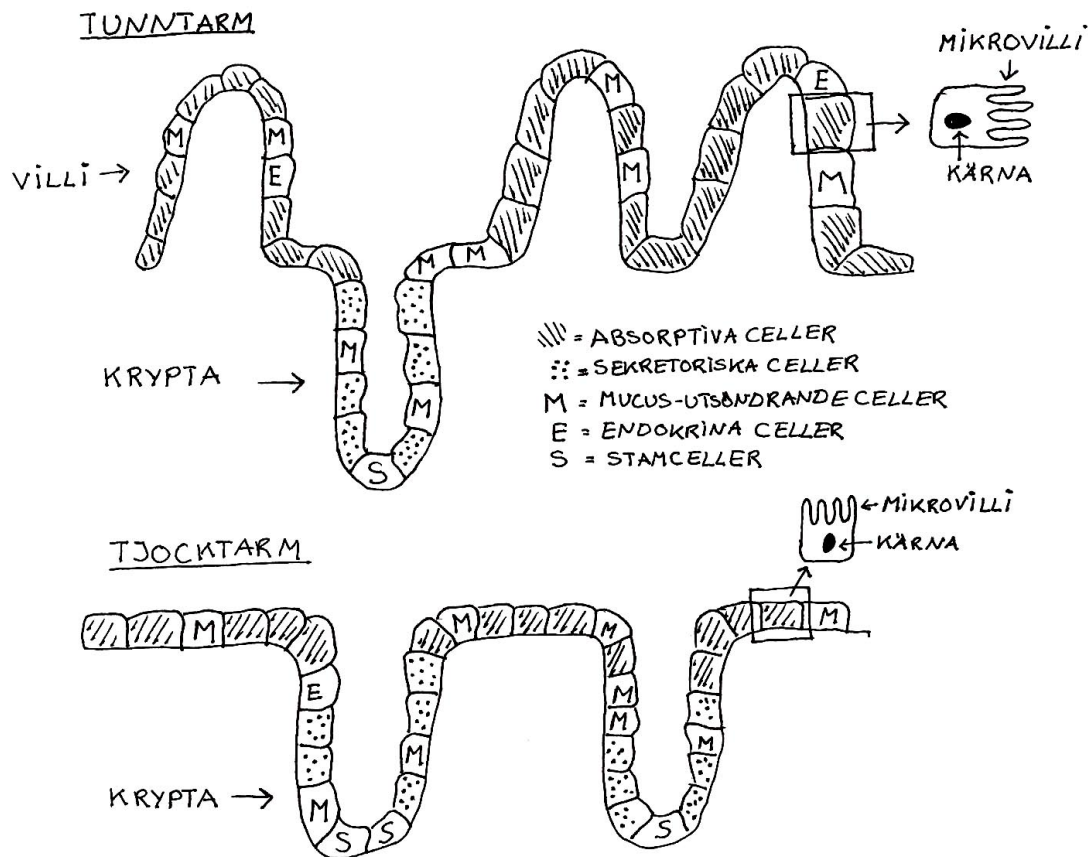 TUNNTARM
MIKROVILLI
KÄRNA
VILLI
M
M
E
M
M
E
M
M
M
KRYPTA
M
M
S
= ABSORPTIVA CELLER
= SEKRETORISKA CELLER
M = MUCUS-UTSÖNDRANDE CELLER
E = ENDOKRINA CELLER
S = STAMCELLER
TJOCKTARM
MIKROVILLI
KÄRNA
M
M
M
M
E
M
M
M
M
KRYPTA
M
S
S
S